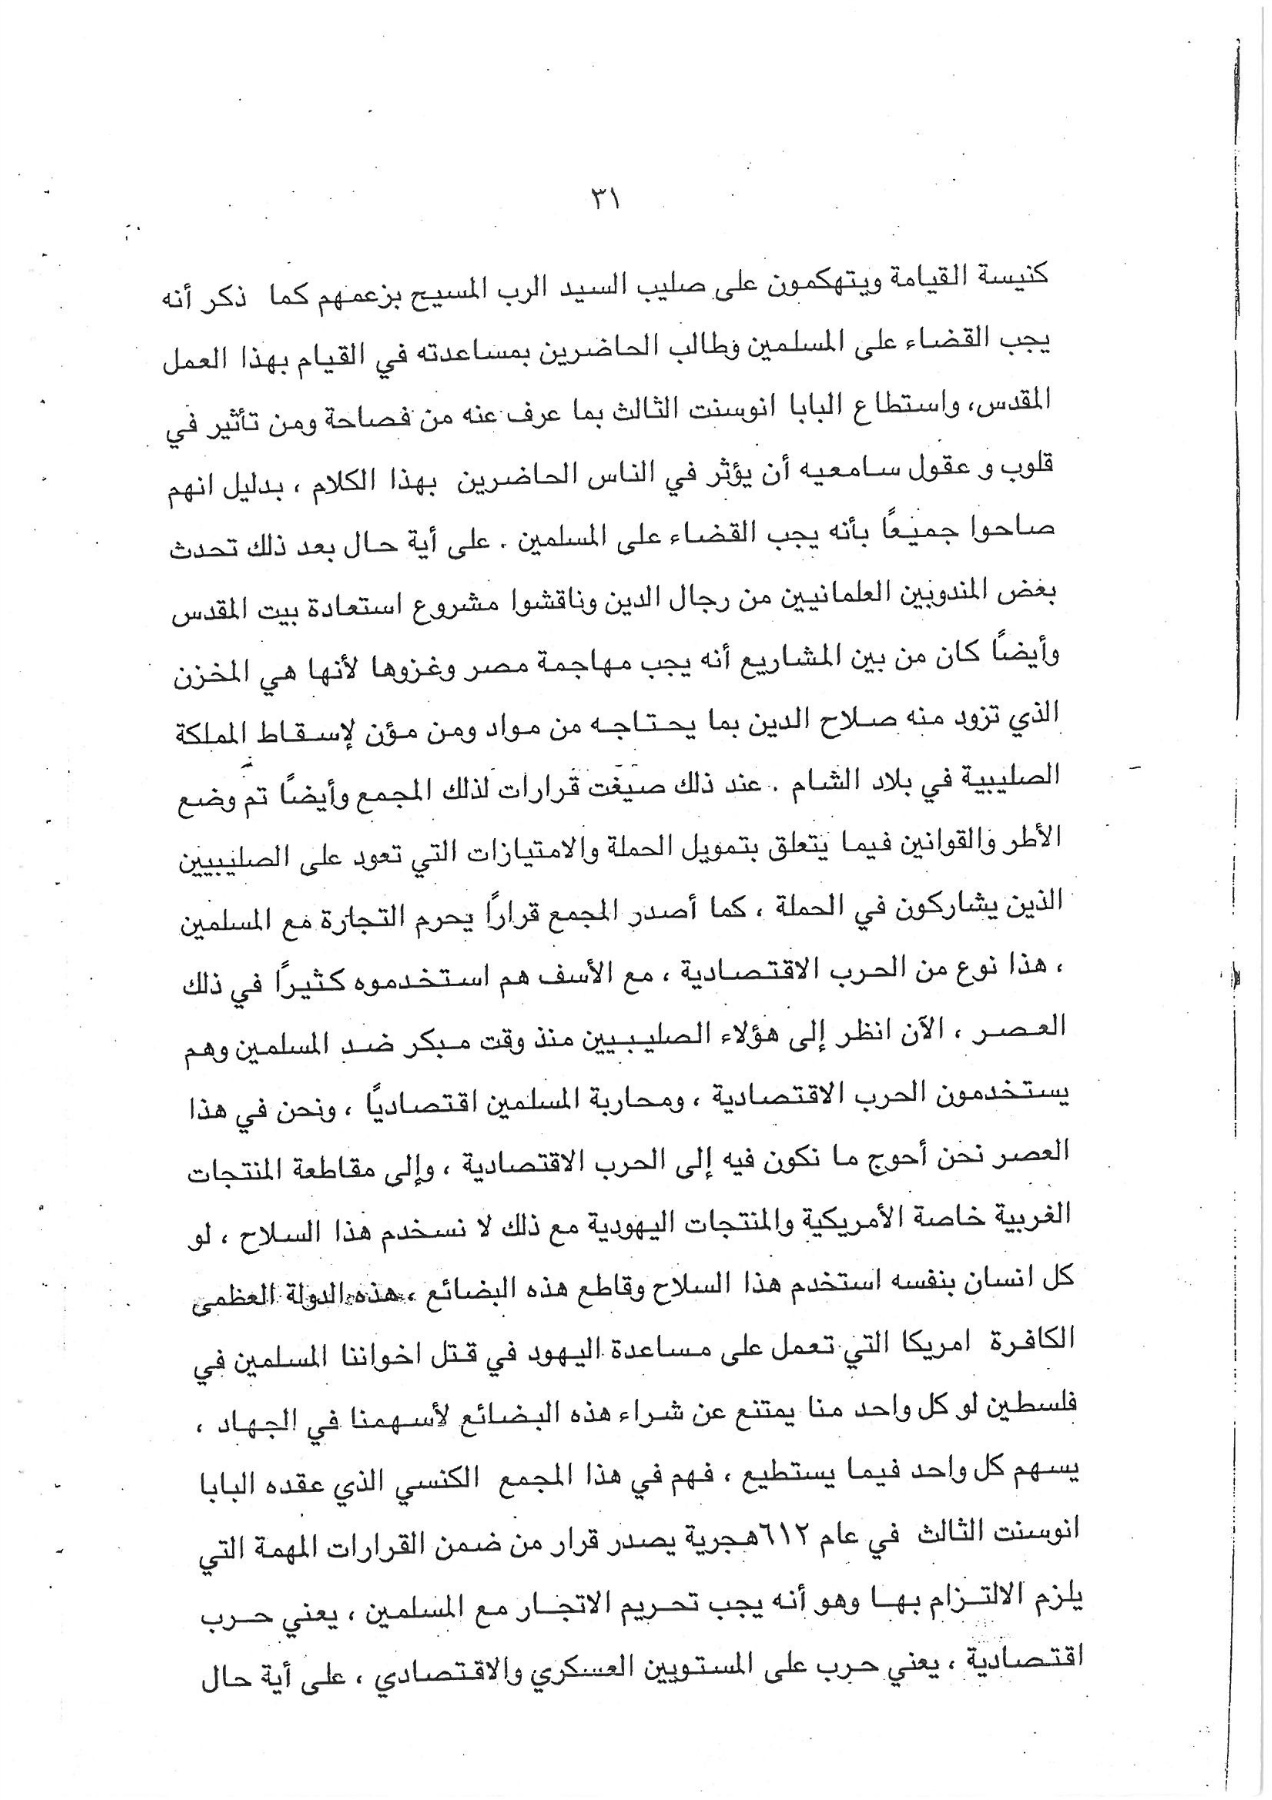 ٣١
كنيسة القيامة ويتهكمون على صليب السيد الرب المسيح بزعمهم كما ذكر أنه
يجب القضاء على المسلمين وطالب الحاضرين بمساعدته في القيام بهذا العمل
المقدس، واستطاع البابا انوسنت الثالث بما عرف عنه من فصاحة ومن تأثير في
قلوب و عقول سامعيه أن يؤثر في الناس الحاضرين بهذا الكلام ، بدليل انهم
صاحوا جميعًا بأنه يجب القضاء على المسلمين . على أية حال بعد ذلك تحدث
بعض المندوبين العلمانيين من رجال الدين وناقشوا مشروع استعادة بيت المقدس
وأيضًا كان من بين المشاريع أنه يجب مهاجمة مصر وغزوها لأنها هي المخزن
الذي تزود منه صلاح الدين بما يحتاجه من مواد ومن مؤن لإسقاط المملكة
الصليبية في بلاد الشام . عند ذلك صيغت قرارات لذلك المجمع وأيضًا تم وضع
الأطر والقوانين فيما يتعلق بتمويل الحملة والامتيازات التي تعود على الصليبيين
الذين يشاركون في الحملة ، كما أصدر المجمع قرارًا يحرم التجارة مع المسلمين
، هذا نوع من الحرب الاقتصادية ، مع الأسف هم استخدموه كثيرًا في ذلك
العصر ، الآن انظر إلى هؤلاء الصليبيين منذ وقت مبكر ضد المسلمين وهم
يستخدمون الحرب الاقتصادية ، ومحاربة المسلمين اقتصاديًا ، ونحن في هذا
العصر نحن أحوج ما نكون فيه إلى الحرب الاقتصادية ، وإلى مقاطعة المنتجات
الغربية خاصة الأمريكية والمنتجات اليهودية مع ذلك لا نسخدم هذا السلاح ، لو
كل انسان بنفسه استخدم هذا السلاح وقاطع هذه البضائع ، هذه الدولة العظمى
الكافرة امريكا التي تعمل على مساعدة اليهود في قتل اخواننا المسلمين في
فلسطين لو كل واحد منا يمتنع عن شراء هذه البضائع لأسهمنا في الجهاد ،
يسهم كل واحد فيما يستطيع ، فهم في هذا المجمع الكنسي الذي عقده البابا
انوسنت الثالث في عام ٦١٢هجرية يصدر قرار من ضمن القرارات المهمة التي
يلزم الالتزام بها وهو أنه يجب تحريم الاتجار مع المسلمين ، يعني حرب
اقتصادية ، يعني حرب على المستويين العسكري والاقتصادي ، على أية حال